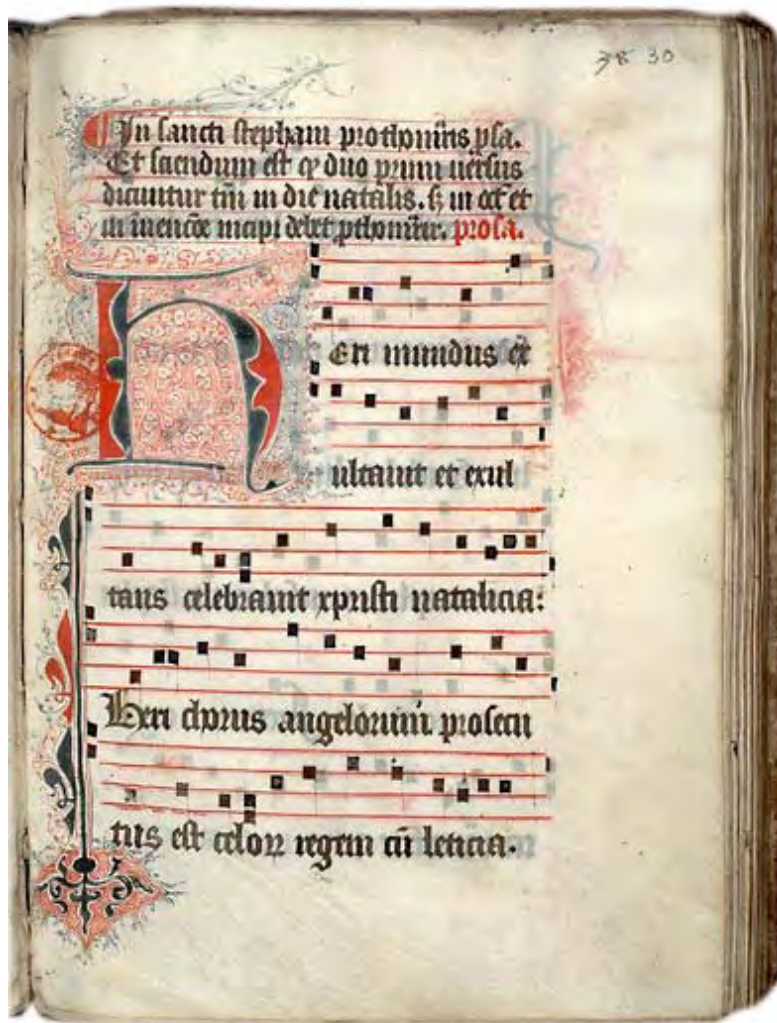 38 30
In sancti stephani prothom̄ris psa.
Et sciendum est qꝫ duo primi uersus
dicuntur tm̄ in die natalis. ꝫ in oct̄ et
in inencōe incipi debet pthomr̄tir. prosa.
Heri mundus ex
ultauit et exul
tans celebrauit xpristi natalicia:
Heri chorus angelorum prosecu
tus est celoꝝ regem cū leticia.